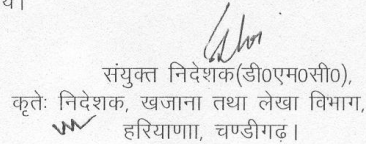 थ।
संयुक्त निदेशक(डी0एम0सी0),
कृतेः निदेशक, खजाना तथा लेखा विभाग,
हरियाणाा, चण्डीगढ़।